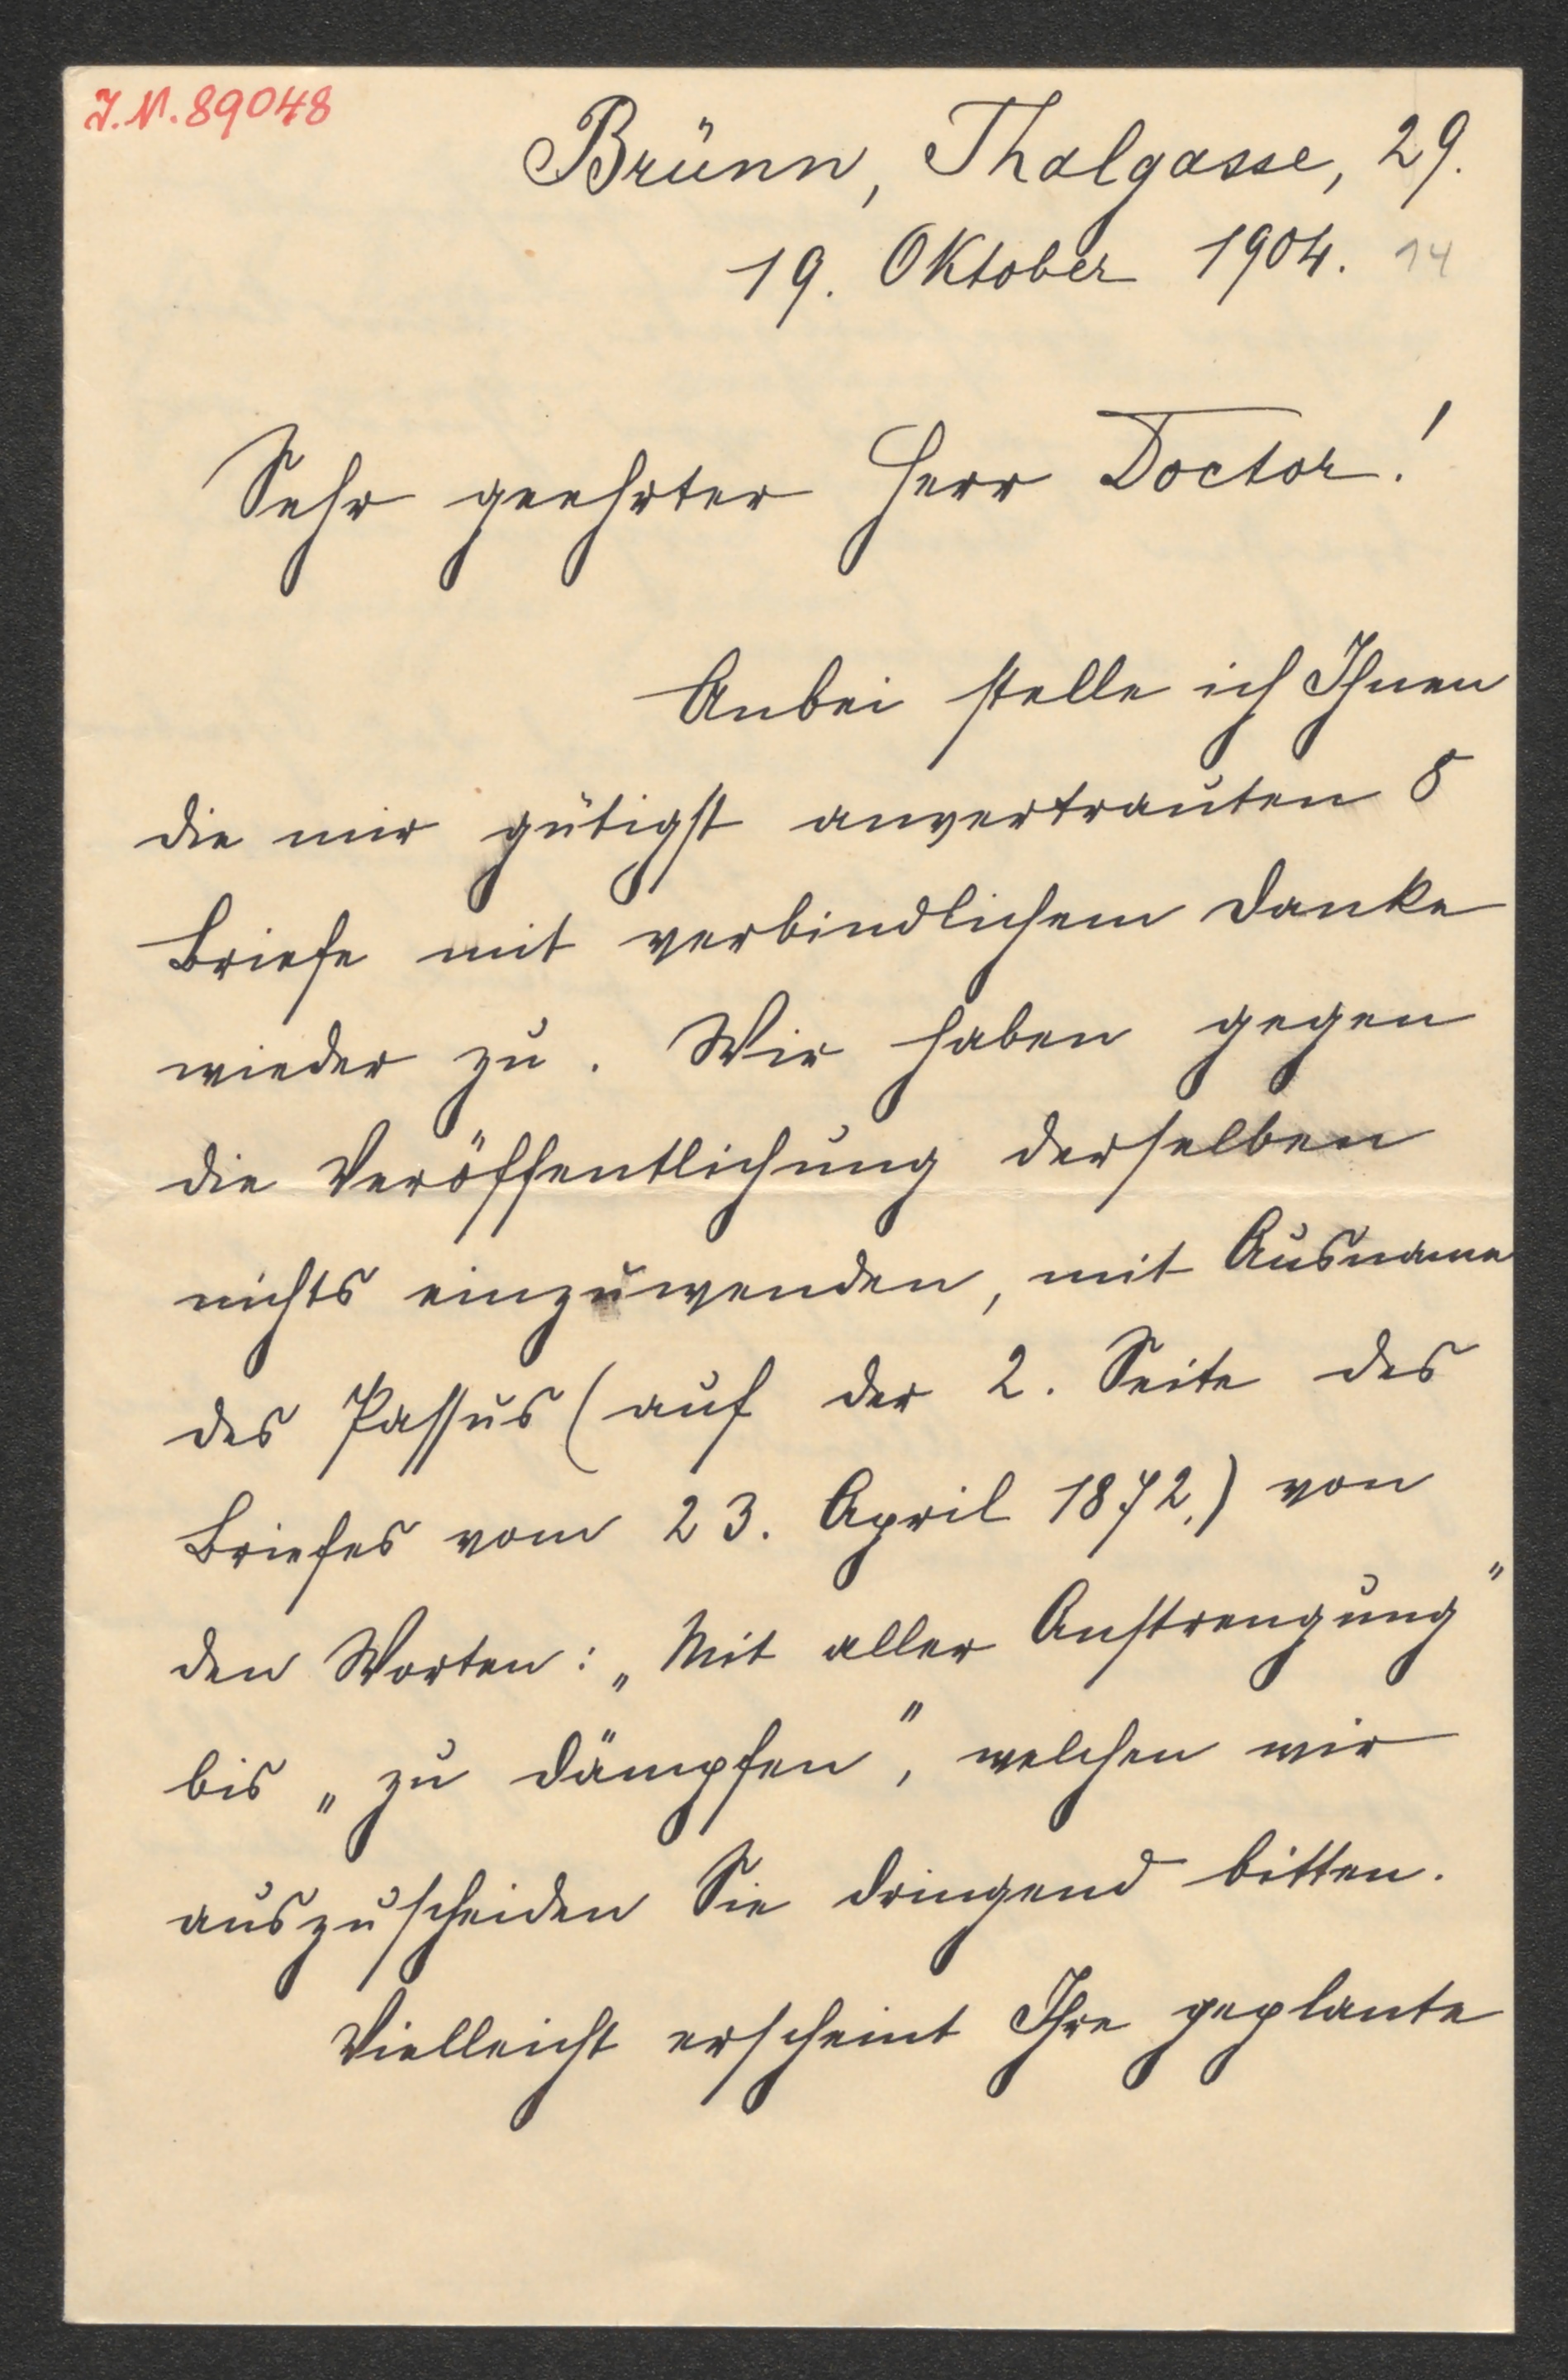 I.N. 89048
Brünn, Thalgasse, 29.
19. Oktober 1904. 14
Sehr geehrter Herr Doctor!
Anbei stelle ich Ihnen
die mir gütigst anvertrauten 5
Briefe mit verbindlichem Danke
wieder zu. Wir haben gegen
die Veröffentlichung derselben
nichts einzuwenden, mit Ausname
des Passus (auf der 2. Seite des
Briefes vom 23. April 1872,) von
den Worten: „Mit aller Anstrengung"
bis „zu dämpfen", welchen wir
auszuscheiden Sie dringend bitten.
Vielleicht erscheint Ihre geplante